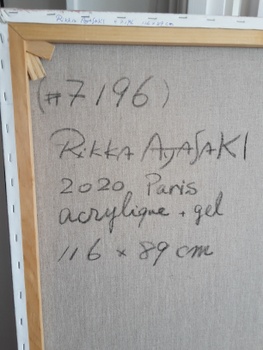 Rikka Ayasaki
(#7196)
RIKKA AYASAKI
2020 Paris
acrylique + gel
116 × 89 cm